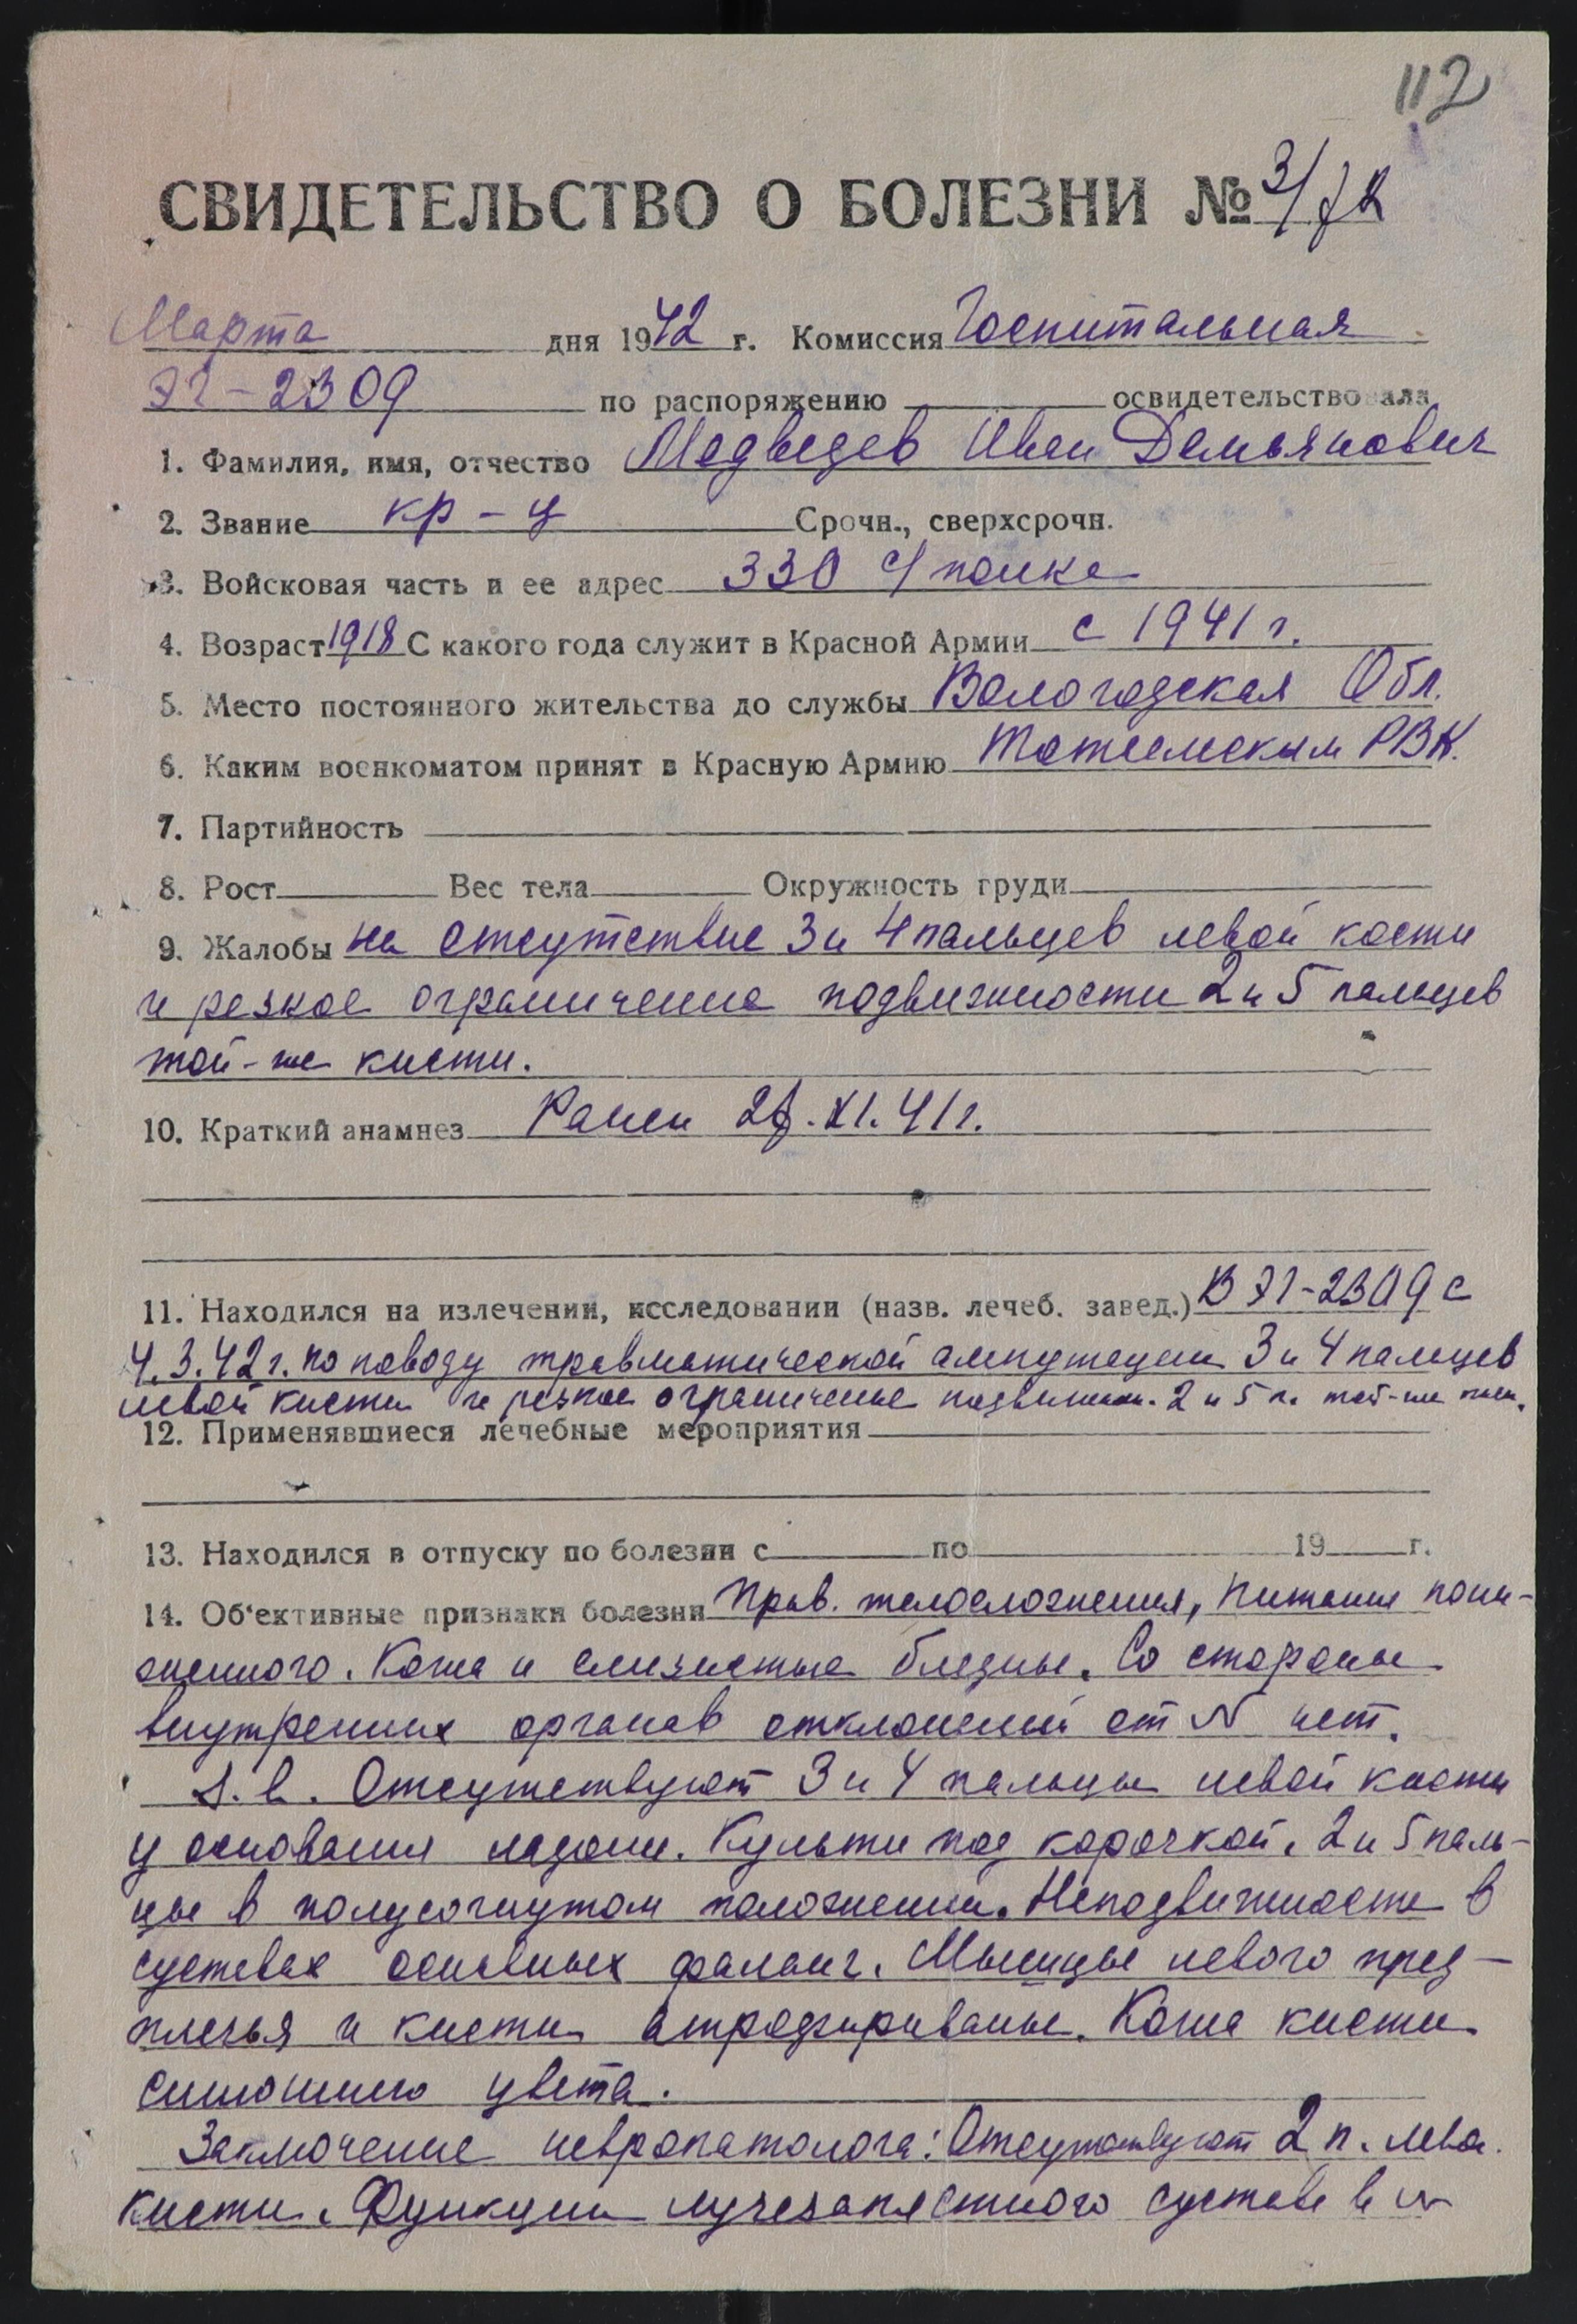 112
СВИДЕТЕЛЬСТВО О БОЛЕЗНИ №
Марта дня 1942 г. Комиссия Госпитальная
ЭГ-2309 по распоряжению освидетельствовала
1. Фамилия, имя, отчество Медведев Иван Демьянович
2. Звание кр-ц Срочн., сверхсрочн.
3. Войсковая часть и ее адрес 330 с/полка
4. Возраст 1918 С какого года служит в Красной Армии с 1941 г.
5. Место постоянного жительства до службы Вологодская Обл.
6. Каким военкоматом принят в Красную Армию Тотемским РВК.
7. Партийность
8. Рост Вес тела Окружность груди
9. Жалобы на отсутствие 3 и 4 пальцев левой кисти
и резкое ограничение подвижности 2 и 5 пальцев
той-же кисти.
10. Краткий анамнез Ранен XI.41 г.
11. Находился на излечении, исследовании (назв. лечеб. завед.) В ЭГ-2309 с
4.3.42 г. по поводу травматической ампутации 3 и 4 пальцев
левой кисти и резкое ограничение подвижн. 2 и 5 п. той-же кист.
12. Применявшиеся лечебные мероприятия
13. Находился в отпуску по болезни с по 19 г.
14. Об'ективные признаки болезни Прав. телосложения, питания пони-
женного. Кожа и слизистые бледные. Со стороны
внутренних органов отклонений от N нет.
Отсутствуют 3 и 4 пальцы левой кисти
у основания ладони. Культи под корочкой. 2 и 5 паль-
цы в полусогнутом положении. Неподвижность в
суставах основных фаланг. Мышцы левого пред-
плечья и кисти атрофированы. Кожа кисти
синюшного цвета.
Заключение невропатолога: Отсутствуют 2 п. левой
кисти. Функции лучезапястного сустава в N